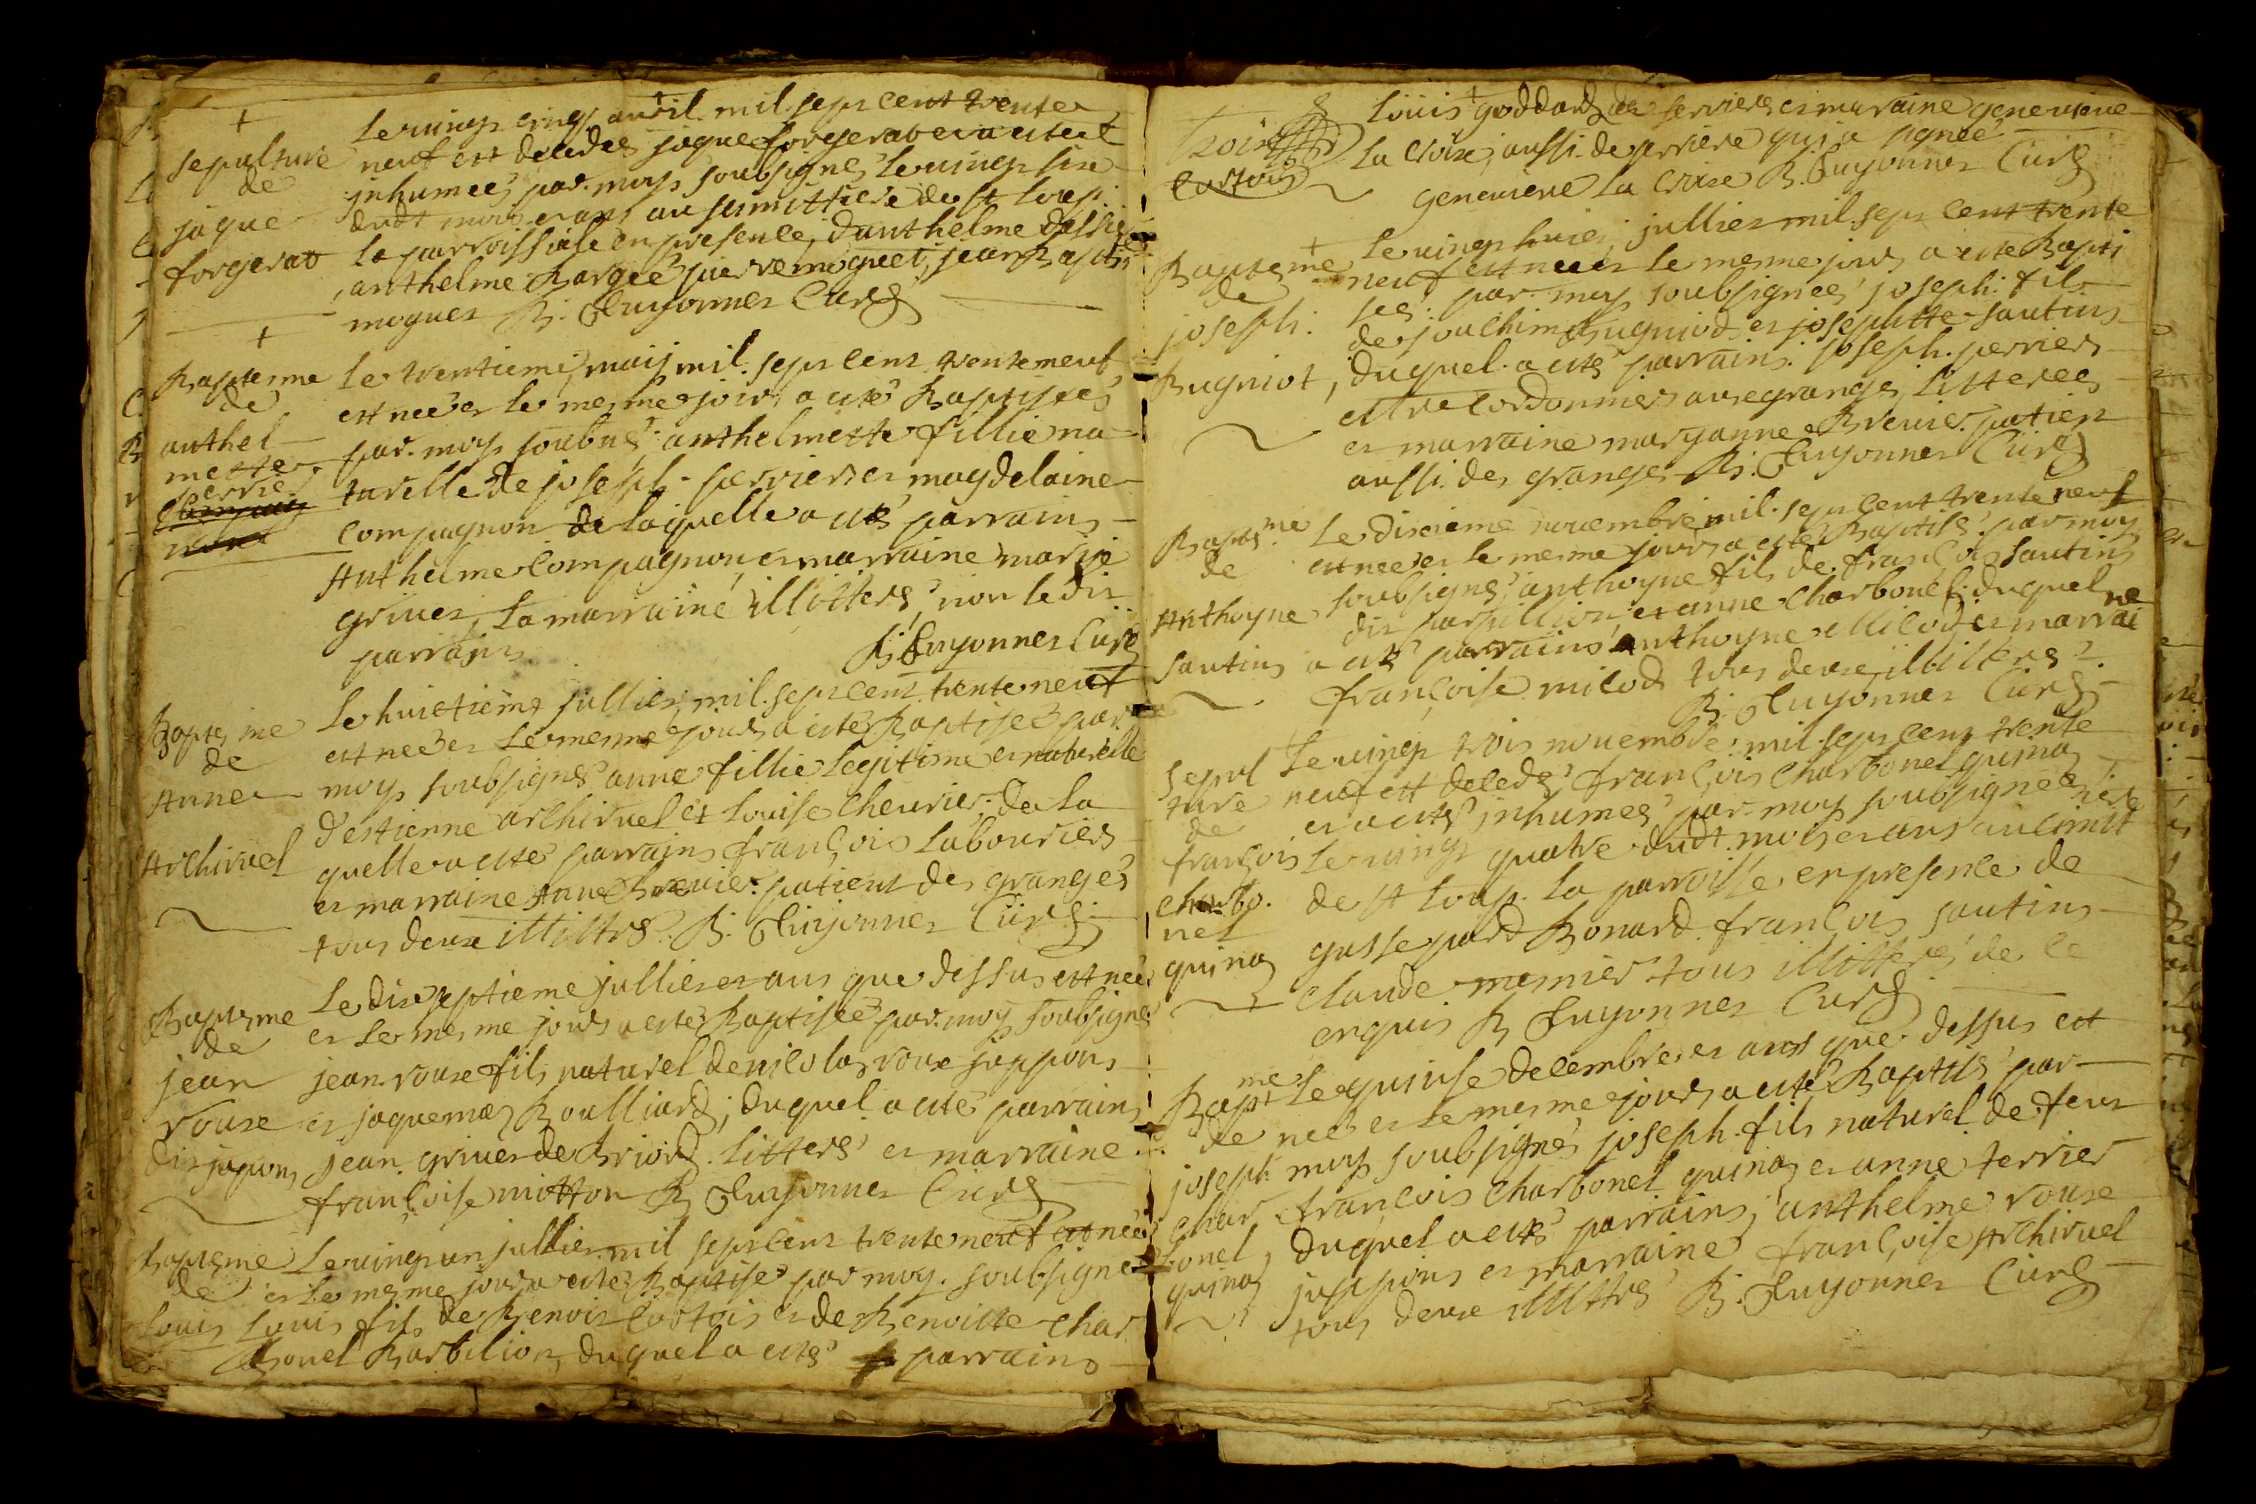 +
sepulture
de
jaque
forgerat
le vingt cinq avril mil sept cent trente
neuf est decedee jaque forgerat et a eteté
inhumeé par moy soubsigné le vingt six
dudt mois et ans au semittiere de st loup
la parroissiale en presence, danthelme
anthelme Bargeé pierre moguet, jean Baptis
moguet B. Guyonnet Curé
+
Baptesme
de
anthel
mette
perrier
le trentieme mais mil sept cent trente neuf
est neé et le mesme jour a eté Baptiseé
par moy soubné anthelmette fillie na
turelle de joseph perrier et magdelaine
Compagnon de laquelle a eté parrain
Anthelme Compagnon et marraine marie
grivet, la marraine illitteré, non le dit
parrain
B. Guyonnet Curé
Baptesme
de
Anne
Archiruel
le huictieme jullier mil sept cent trente neuf
est neé et le mesme jour a eté Baptiseé par
moy soubsigné anne fillie legitime et naturelle
d'estienne archiruel et louise Cheurier de la
quelle a eté parrain françois labourier
et marraine Anne Brevier patient des granges
tous deux illittré B. Guyonnet Curé
Baptesme
de
jean
roux
dit japon
le dix septieme jullier et ans que dessus est neé
et le mesme jour a eté Baptiseé par moy soubsigné
jean roux fils naturel de nicolas roux jappon
et jaquema Boulliard; duquel a eté parrain
jean grivet de Briord litteré et marraine
françoise mitton B. Guyonnet Curé
Baptesme
de
Louis
le vingt un jullier mil sept cent trente neuf est neé
et le mesme jour a eté Baptisé par moy soubsigné
Louis fils de Benoit Cortois et de Benoitte Char
Bonel Barbilion, duquel a eté parrain
Cortois
Louis goddard de serriere et maraine genevieve
la Croix, aussi de serriere qui a signeé
genevieve la Croix B. Guyonnet Curé
+
Baptesme
de
joseph
Bugniot
le vingt huict jullier mil sept cent trente
neuf est neé et le mesme jour a eté Bapti
seé par moy soubsigneé joseph fils
de jouachim Bugniod et josephtte sautin
duquel a eté parrain joseph perrier
cordonnier aux granges littereé
et marraine maryanne Brevier patient
aussi des granges B. Guyonnet Curé
Baptme
de
Anthoyne
sautin
le dixieme novembre mil sept cent trente neuf
est neé et le mesme jour a eté Baptisé par moy
soubsigné anthoyne fils de françois sautin
dit papillion et anne Charbonel duquel
a eté parrain anthoyne milod et marrai ne
françoise milod tous deux illitteré
B. Guyonnet Curé
sepul
ture
de
françois
charbo
nel
quina
le vingt trois novembre mil sept cent trente
neuf est decedé françois Charbonel quina
et a eté inhumeé par moy soubsigneé
le vingt quatre dudt mois et ans au cimit iere
de st loup la parroisse en presence de
gasspard Bonard françois sautin
claude mesnier tous illitteré de ce
enquis B Guyonnet Curé
Baptme
de
joseph
char
bonel
quina
le quinse decembre et ans que dessus est
neé et le mesme jour a eté Baptisé par
moy soubsigné joseph fils naturel de feu
françois Charbonel quina et anne terrier
duquel a eté parrain, anthelme roux
jappon et marraine françoise Archiruel
tous deux illittré B. Guyonnet Curé